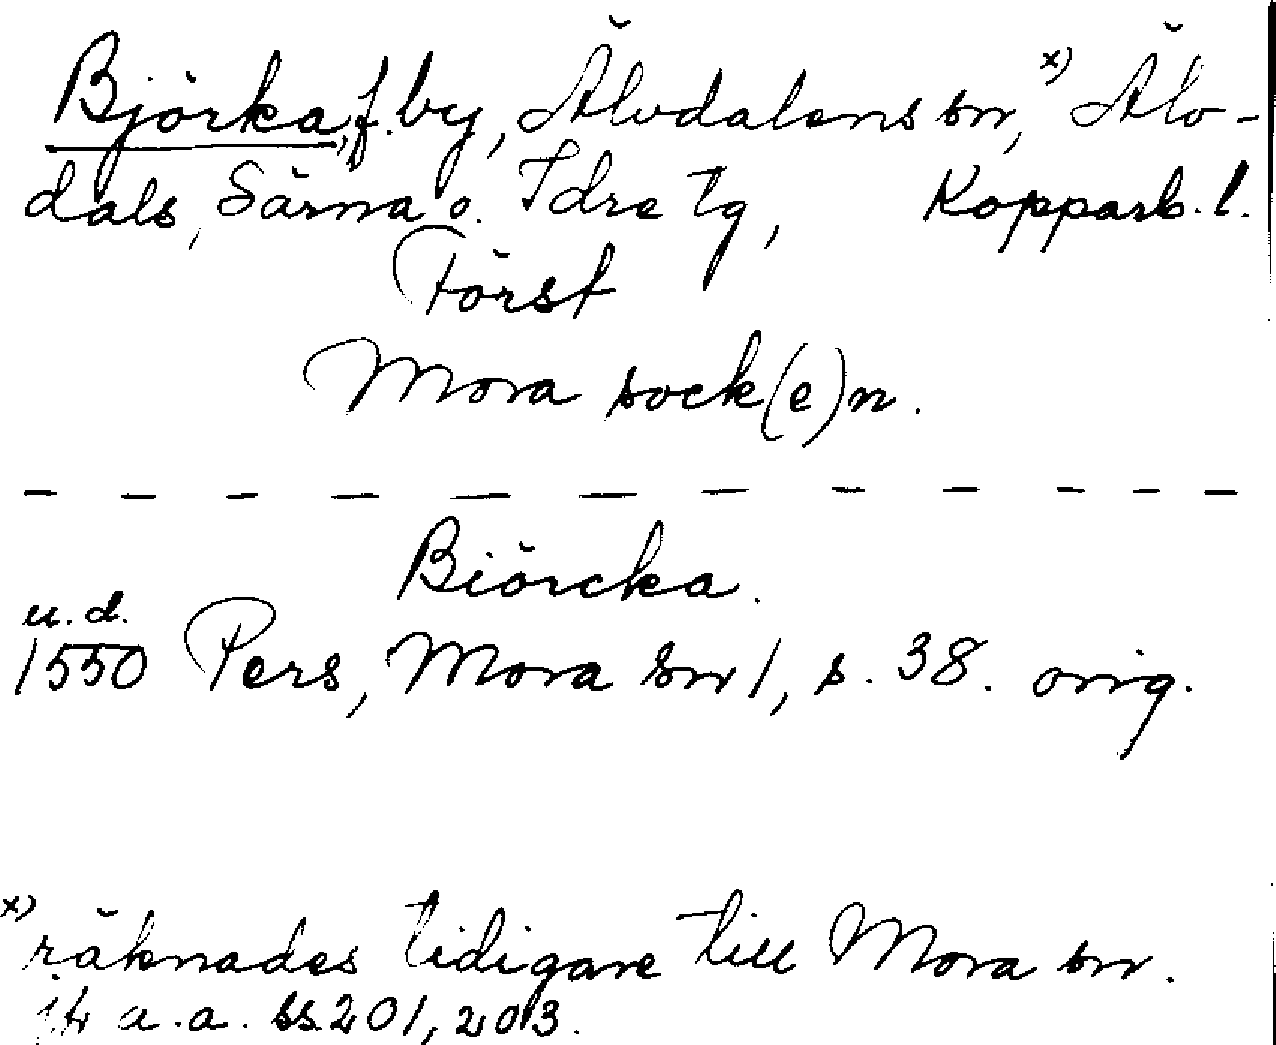 Björka, f. by, Älvdalens sn, x) Älv-
dals, Särna o. Idre tg, Kopparb. l.
Först
Mora sock(e)n.
- - - - - - - - - - - -
Biörcka.
u. d.
1550 Pers, Mora sn 1, s. 38. orig.
x) räknades tidigare till Mora sn.
jfr a.a. ss 201, 203.